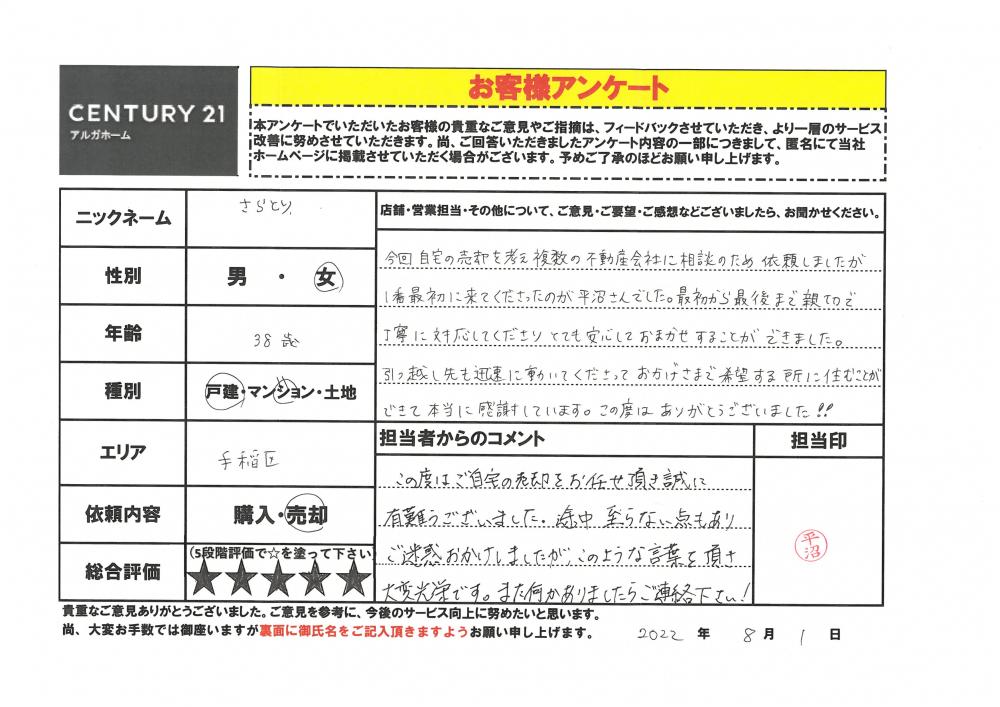 CENTURY 21
アルガホーム
お客様アンケート
本アンケートでいただいたお客様の貴重なご意見やご指摘は、フィードバックさせていただき、より一層のサービス
改善に努めさせていただきます。尚、ご回答いただきましたアンケート内容の一部につきまして、匿名にて当社
ホームページに掲載させていただく場合がございます。予めご了承のほどお願い申し上げます。
ニックネーム
さらとり
性別
男 ・ 女
年齢
38 歳
種別
戸建・マンション・土地
エリア
手稲区
依頼内容
購入・売却
総合評価
(5段階評価で☆を塗って下さい)
★★★★★
店舗・営業担当・その他について、ご意見・ご要望・ご感想などございましたら、お聞かせください。
今回自宅の売却を考え複数の不動産会社に相談のため依頼しましたが
1番最初に来てくださったのが平沼さんでした。最初から最後まで親切で
丁寧に対応してくださりとても安心しておまかせすることができました。
引っ越し先も迅速に動いてくださっておかげさまで希望する所に住むことが
できて本当に感謝しています。この度はありがとうございました!!
担当者からのコメント
この度はご自宅の売却をお任せ頂き誠に
有難うございました。途中至らない点もあり
ご迷惑おかけしましたが、このような言葉を頂き
大変光栄です。また何かありましたらご連絡下さい!
担当印
平沼
貴重なご意見ありがとうございました。ご意見を参考に、今後のサービス向上に努めたいと思います。
尚、大変お手数では御座いますが裏面に御氏名をご記入頂きますようお願い申し上げます。
2022 年 8 月 1 日